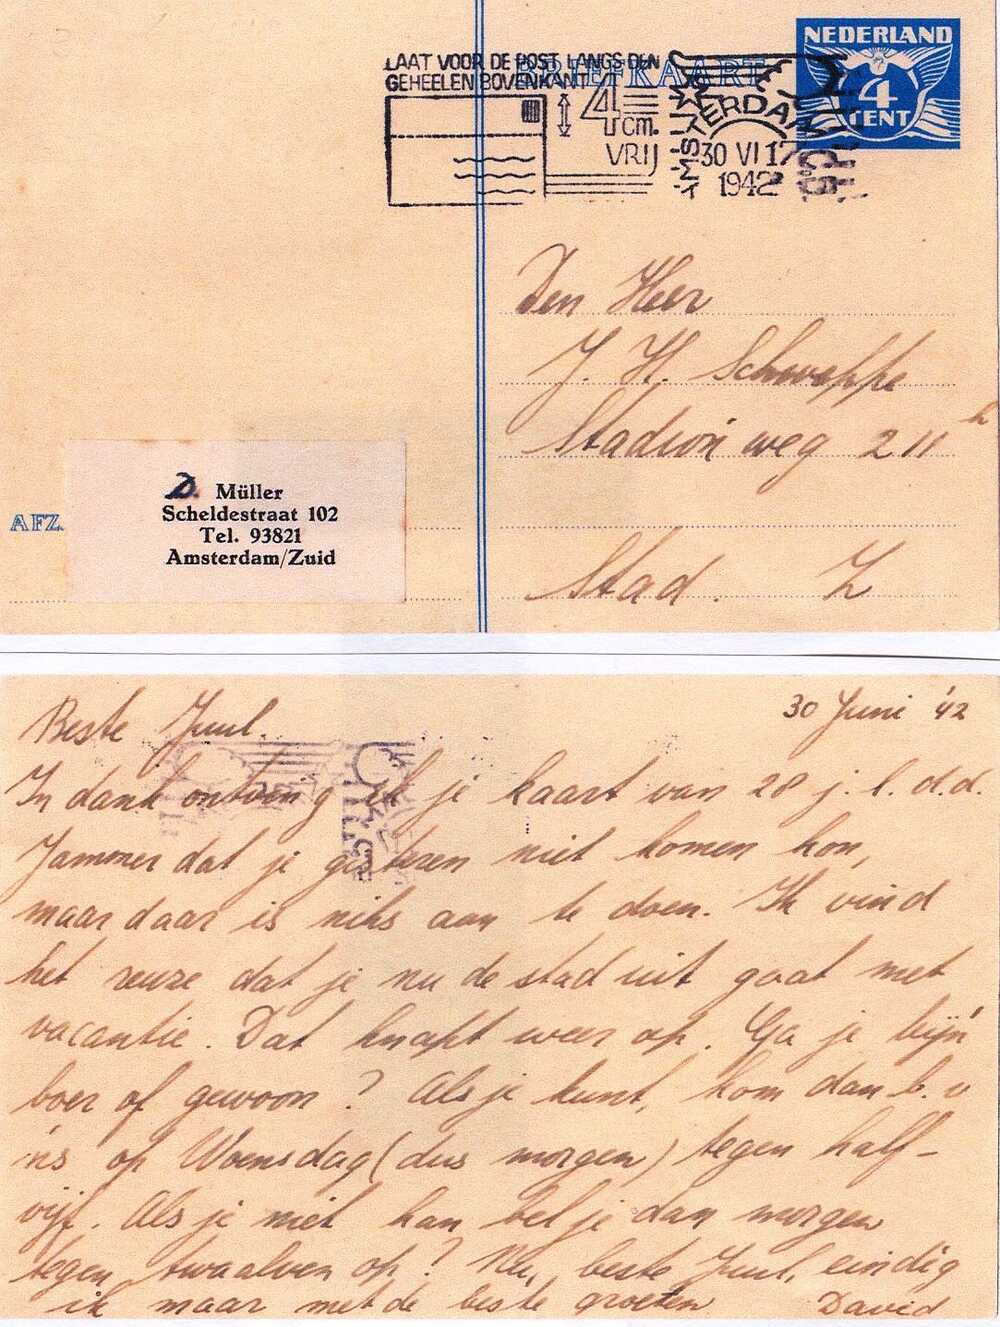 LAAT VOOR DE POST LANGS DEN
GEHEELEN BOVENKANT
4 cm.
VRIJ
BRIEFKAART
AMSTERDAM
30 VI 17
1942
NEDERLAND
4
CENT
Den Heer
J. H. Schweppe
Stadionweg 211 h
Stad. Z
AFZ.
D. Müller
Scheldestraat 102
Tel. 93821
Amsterdam/Zuid
30 Juni '42
Beste Juul.
In dank ontving ik je kaart van 28 j.l. d.d.
Jammer dat je gisteren niet komen kon,
maar daar is niks aan te doen. Ik vind
het reuze dat je nu de stad uit gaat met
vacantie. Dat knapt weer op. Ga je bij'n
boer of gewoon? Als je kunt, kom dan b.v
'ns op Woensdag (dus morgen) tegen half-
vijf. Als je niet kan bel je dan morgen
tegen twaalven op? Nu, beste Juul, eindig
ik maar met de beste groeten David